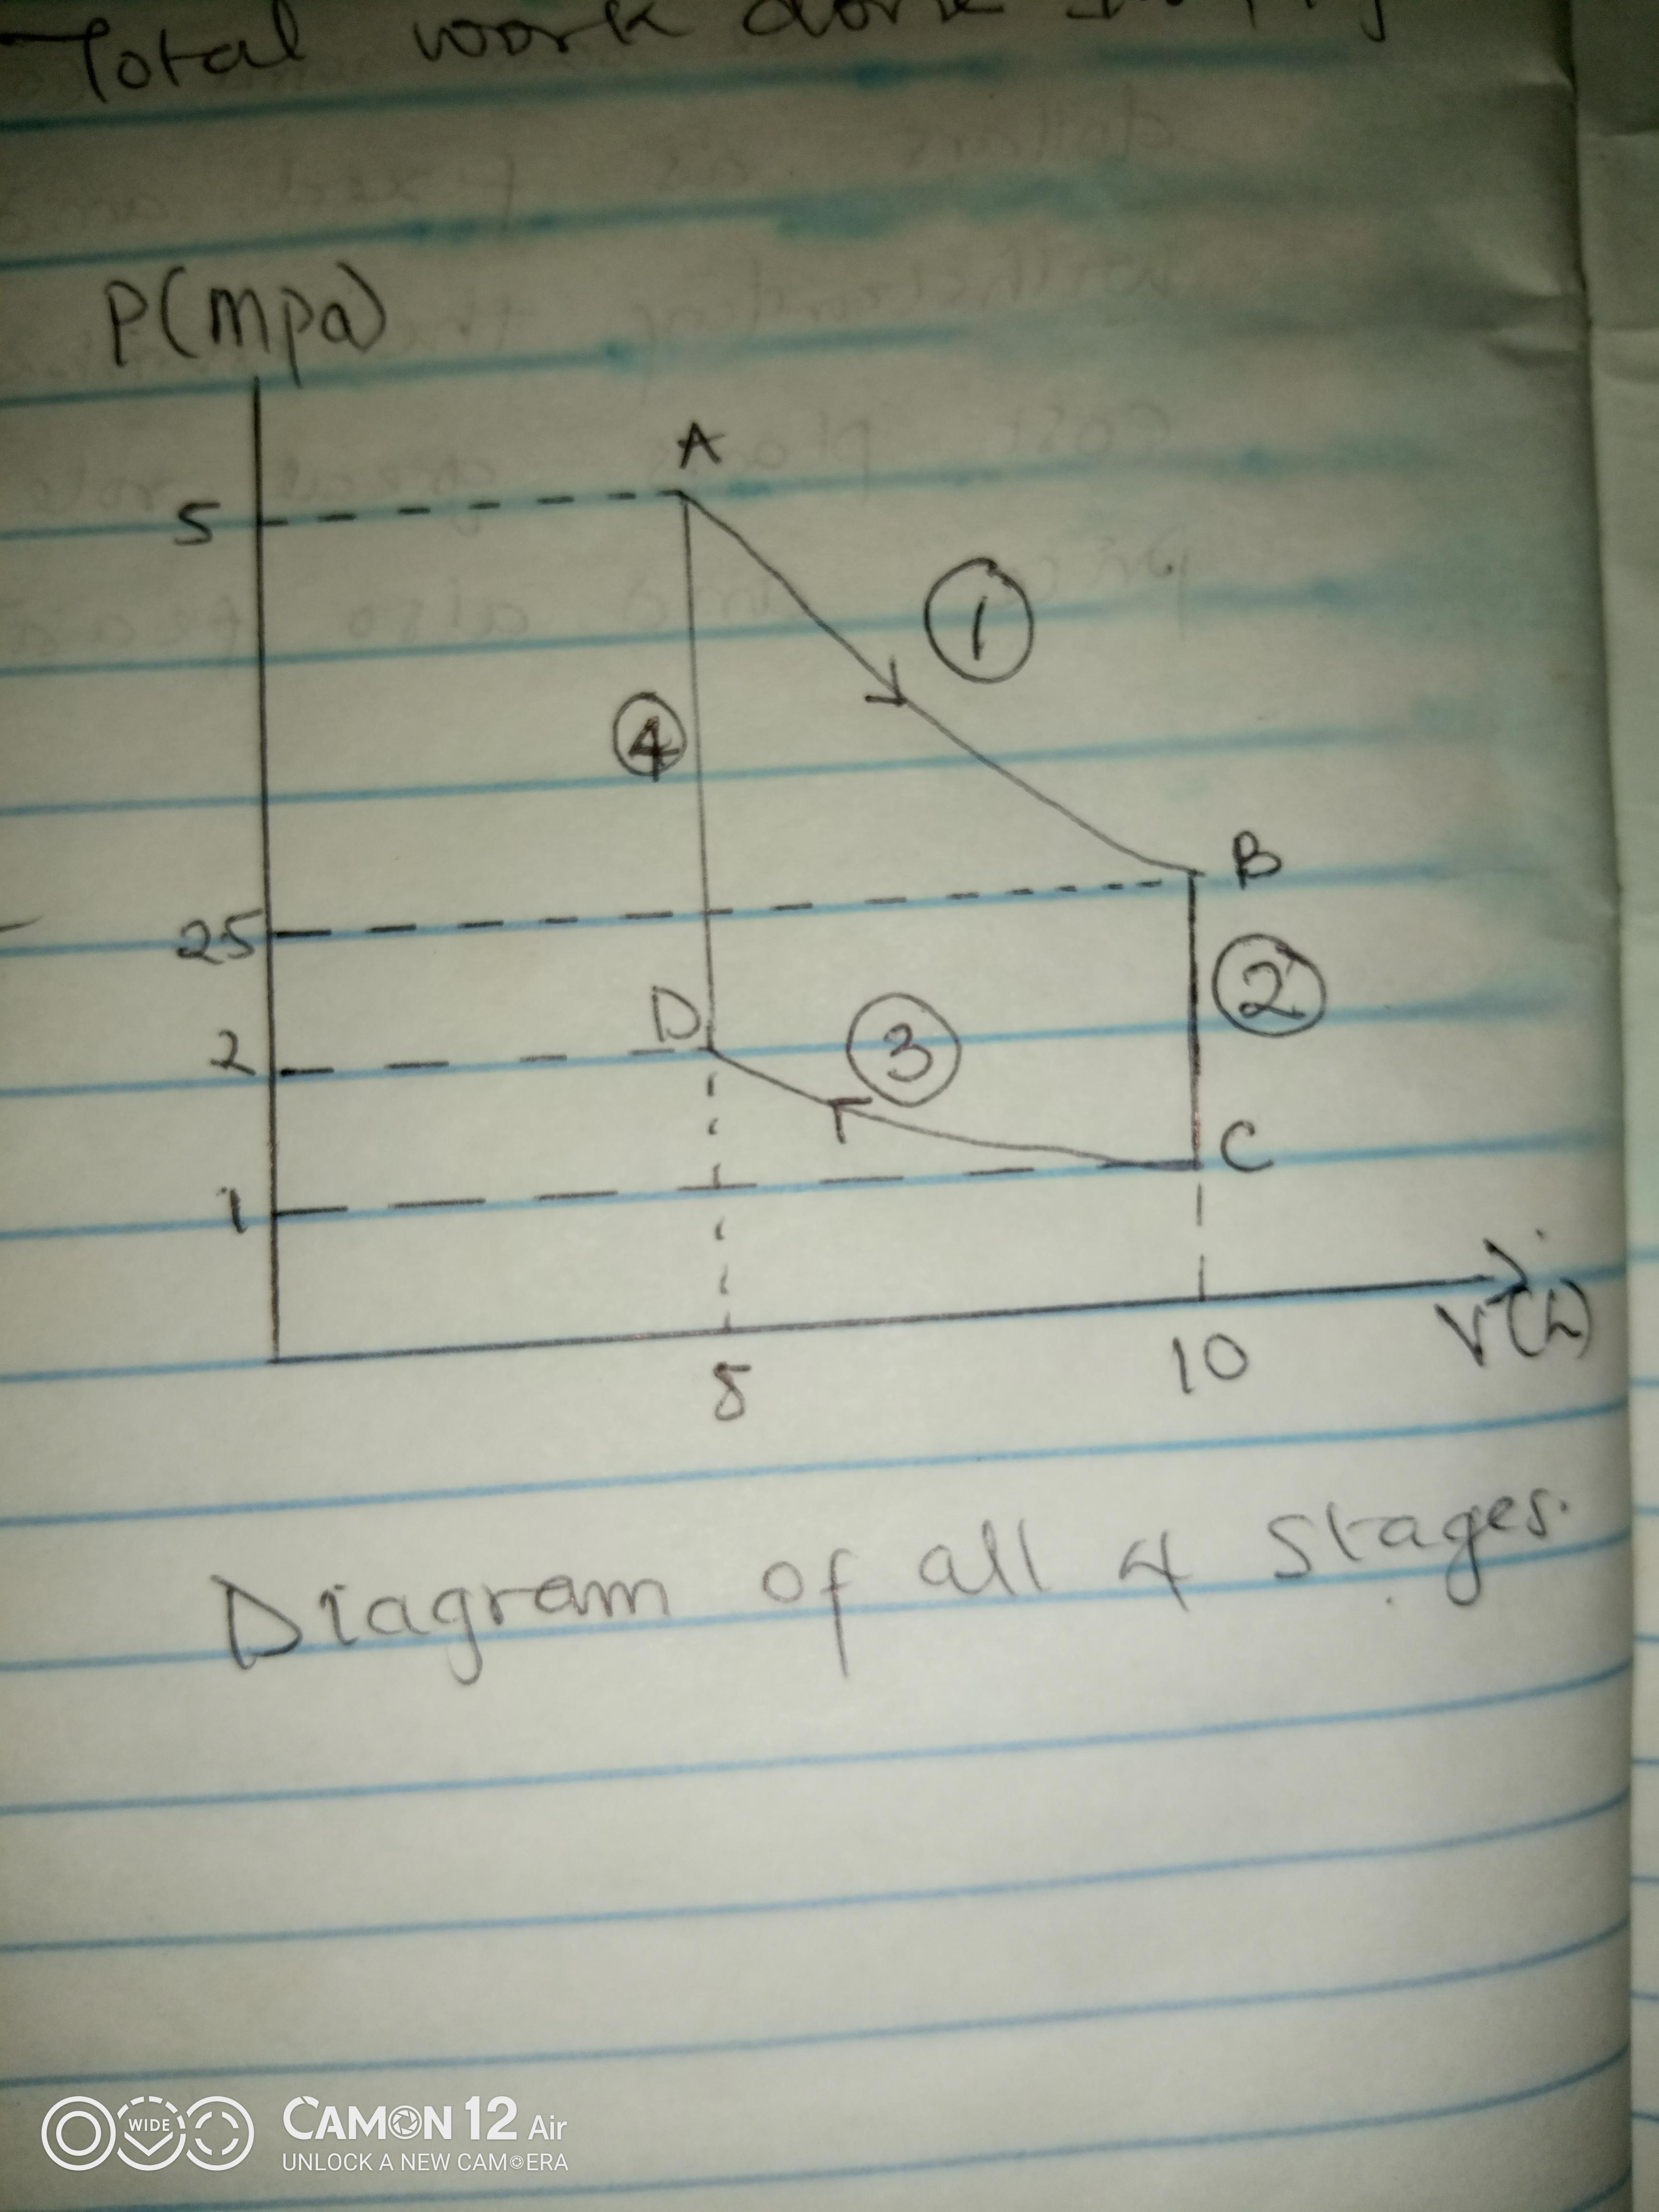 Total work done
P(mpa)
A
5
1
4
B
25
2
D
3
2
C
1
V(L)
5
10
Diagram of all 4 stages.
WIDE
CAMON 12 Air
UNLOCK A NEW CAMERA